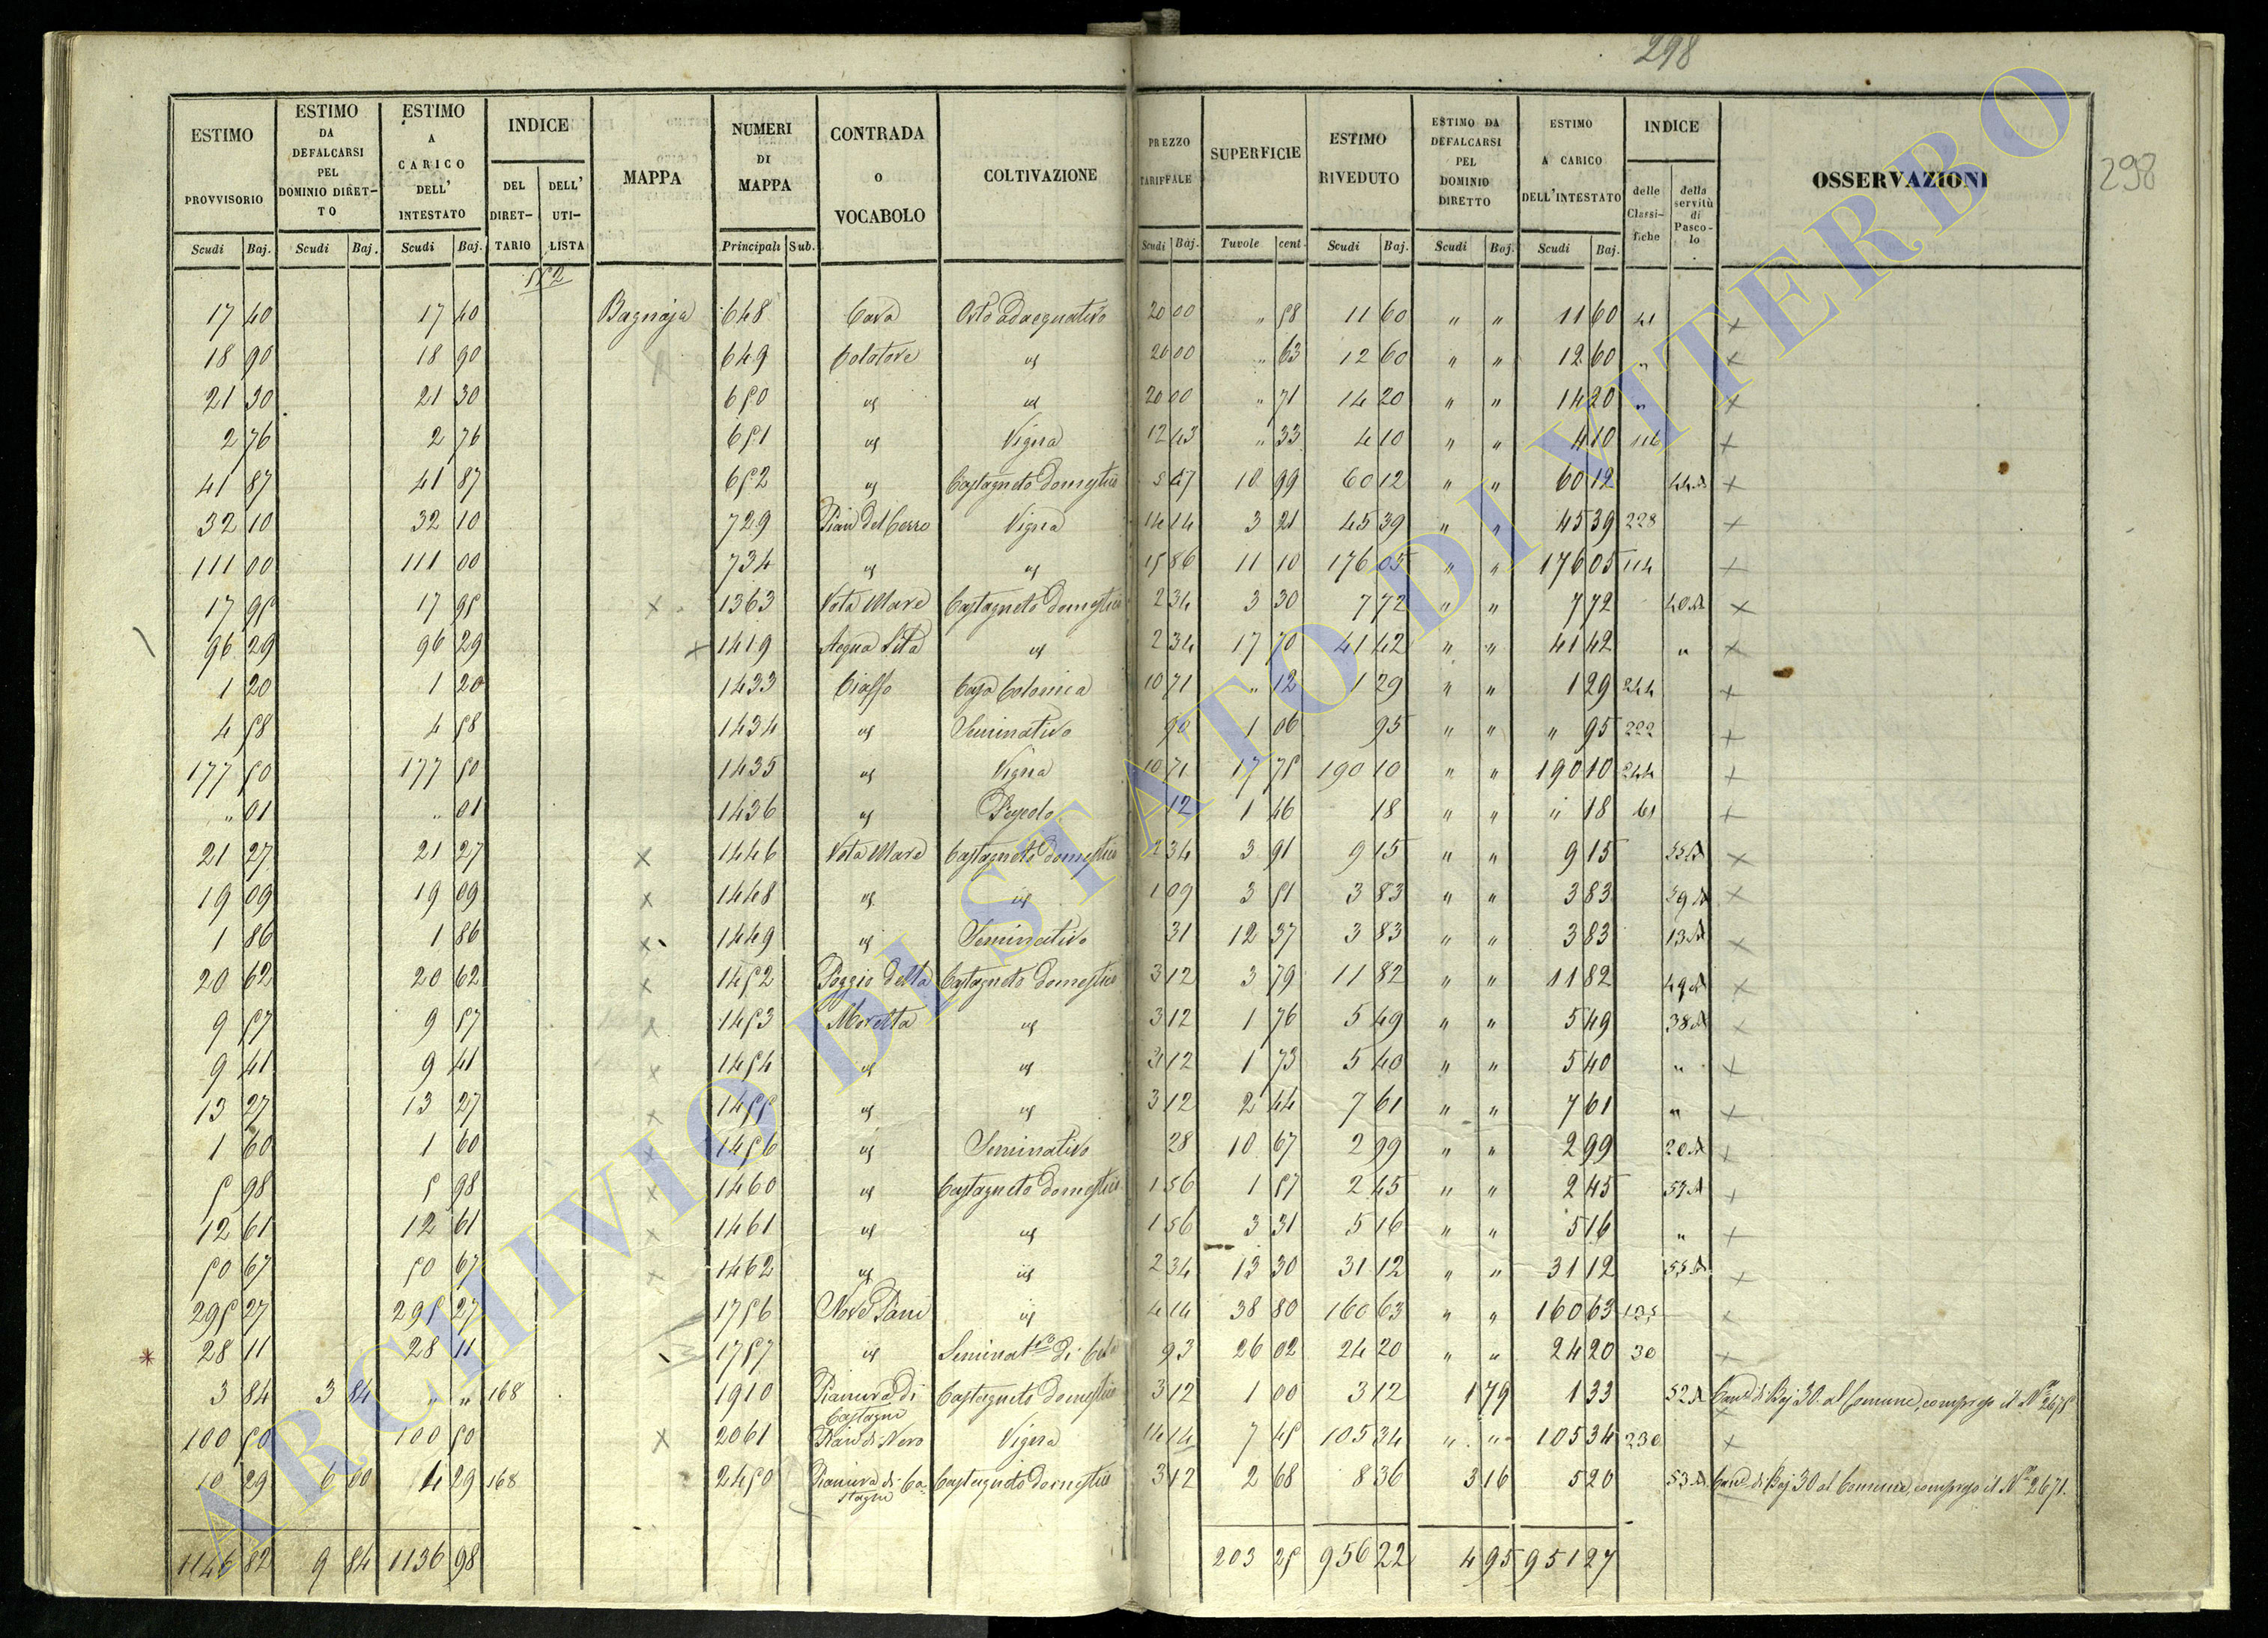 298
298
ESTIMO PROVVISORIO | ESTIMO DA DEFALCARSI PEL DOMINIO DIRET-TO | ESTIMO A CARICO DELL' INTESTATO | INDICE DEL DIRET-TARIO | DELL' UTI-LISTA | MAPPA | NUMERI DI MAPPA | CONTRADA O VOCABOLO | COLTIVAZIONE | PREZZO TARIFFALE | SUPERFICIE | ESTIMO RIVEDUTO | ESTIMO DA DEFALCARSI PEL DOMINIO DIRETTO | ESTIMO A CARICO DELL'INTESTATO | INDICE delle Classi-fiche | della servitù di Pasco-lo | OSSERVAZIONI
Scudi Baj. | Scudi Baj. | Scudi Baj. | Principali Sub. | Scudi Baj. | Tavole cent. | Scudi Baj. | Scudi Baj. | Scudi Baj.
552
17 40 | 17 40 | Bagnaja | 648 | Cava | Orto adacquativo | 20 00 | " 58 | 11 60 | " " | 11 60 | 41 | x
18 90 | 18 90 | 649 | Colatore | id | 20 00 | " 63 | 12 60 | " " | 12 60 | " | x
21 30 | 21 30 | 650 | id | id | 20 00 | " 71 | 14 20 | " " | 14 20 | " | x
2 76 | 2 76 | 651 | id | Vigna | 12 43 | " 33 | 4 10 | " " | 4 10 | 116 | x
41 87 | 41 87 | 652 | id | Castagneto domestico | 5 47 | 10 99 | 60 12 | " " | 60 12 | x
32 10 | 32 10 | 729 | Pian del Cerro | Vigna | 14 14 | 3 21 | 45 39 | " " | 45 39 | 228 | x
111 00 | 111 00 | 734 | id | id | 15 86 | 11 10 | 176 05 | " " | 176 05 | 114 | x
17 95 | 17 95 | x | 1363 | Vota Mare | Castagneto domestico | 2 34 | 3 30 | 7 72 | " " | 7 72 | x
96 29 | 96 29 | x | 1419 | Acqua | id | 2 34 | 17 70 | 41 42 | " " | 41 42 | " | x
1 20 | 1 20 | 1433 | Ciasso | Casa Colonica | 10 71 | " 12 | 1 29 | " " | 1 29 | 244 | x
4 58 | 4 58 | 1434 | id | Seminativo | 90 | 1 06 | 95 | " " | " 95 | 222 | x
177 50 | 177 50 | 1435 | id | Vigna | 10 71 | 17 75 | 190 10 | " " | 190 10 | 244 | x
" 01 | " 01 | 1436 | id | Pascolo | 12 | 1 46 | 18 | " " | " 18 | 61 | x
21 27 | 21 27 | x | 1446 | Vota Mare | Castagneto domestico | 2 34 | 3 91 | 9 15 | " " | 9 15 | x
19 09 | 19 09 | x | 1448 | id | id | 1 09 | 3 51 | 3 83 | " " | 3 83 | x
1 86 | 1 86 | x | 1449 | id | Seminativo | 31 | 12 37 | 3 83 | " " | 3 83 | x
20 62 | 20 62 | x | 1452 | Poggio della | Castagneto domestico | 3 12 | 3 79 | 11 82 | " " | 11 82 | x
9 57 | 9 57 | x | 1453 | Moretta | id | 3 12 | 1 76 | 5 49 | " " | 5 49 | x
9 41 | 9 41 | x | 1454 | id | id | 3 12 | 1 73 | 5 40 | " " | 5 40 | " | x
13 27 | 13 27 | x | 1455 | id | id | 3 12 | 2 44 | 7 61 | " " | 7 61 | " | x
1 60 | 1 60 | x | 1456 | id | Seminativo | 28 | 10 67 | 2 99 | " " | 2 99 | x
5 98 | 5 98 | x | 1460 | id | Castagneto domestico | 1 56 | 1 57 | 2 45 | " " | 2 45 | x
12 61 | 12 61 | x | 1461 | id | id | 1 56 | 3 31 | 5 16 | " " | 5 16 | " | x
50 67 | 50 67 | x | 1462 | id | id | 2 34 | 13 30 | 31 12 | " " | 31 12 | x
295 27 | 295 27 | 1756 | Nove Pani | id | 4 14 | 38 80 | 160 63 | " " | 160 63 | x
28 11 | 28 11 | 1757 | id | Seminat.vo di | 93 | 26 02 | 24 20 | " " | 24 20 | 30 | x
3 84 | 3 84 | " " | 168 | 1910 | Pianura di Castagni | Castagneto domestico | 3 12 | 1 00 | 3 12 | 1 79 | 1 33 | Can.e di Baj 30 al Comune, compreso il N.o 2675
100 50 | 100 50 | x | 2061 | Piano di Nero | Vigna | 14 14 | 7 45 | 105 34 | " " | 105 34 | 230 | x
10 29 | 6 00 | 4 29 | 168 | 2450 | Pianura di Ca-stagni | Castagneto domestico | 3 12 | 2 68 | 8 36 | 3 16 | 5 20 | Can.e di Baj 30 al Comune, compreso il N.o 2671.
1146 82 | 9 84 | 1136 98 | 203 25 | 956 22 | 4 95 | 951 27
ARCHIVIO DI STATO DI VITERBO